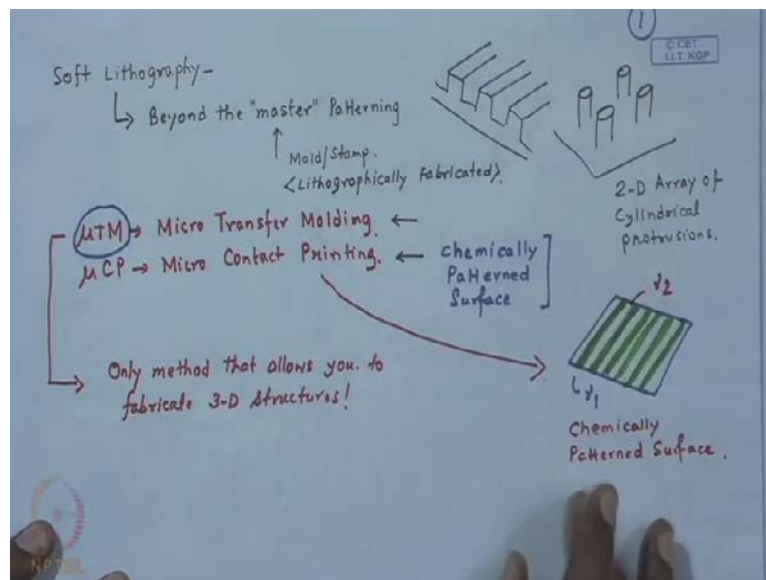 1
© CET
I.I.T. KGP
Soft Lithography-
Beyond the "master" Patterning
Mold/Stamp.
<Lithographically Fabricated>.
2-D Array of
Cylindrical
protrusions.
μTM → Micro Transfer Molding. ←
μCP → Micro Contact Printing. ← Chemically
Patterned
Surface
Only method that allows you to
fabricate 3-D structures!
γ2
γ1
Chemically
Patterned Surface.
NPTEL